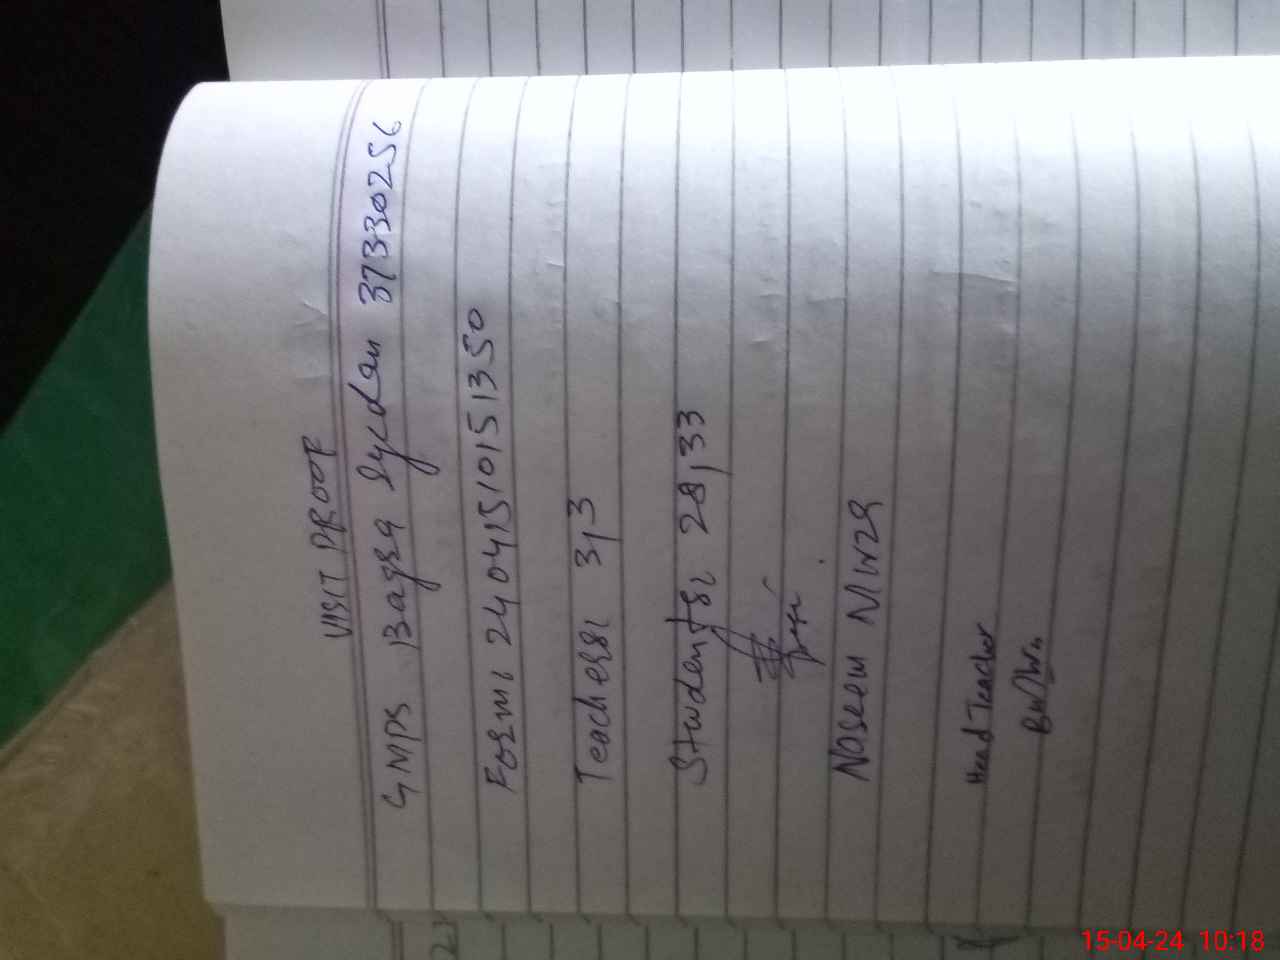 VISIT PROOF
GMPS Bagga Syedan 37330256
Form: 24041510151350
Teachers: 3,3
Students: 28,33
Naseem Mirza
Head Teacher
15-04-24 10:18